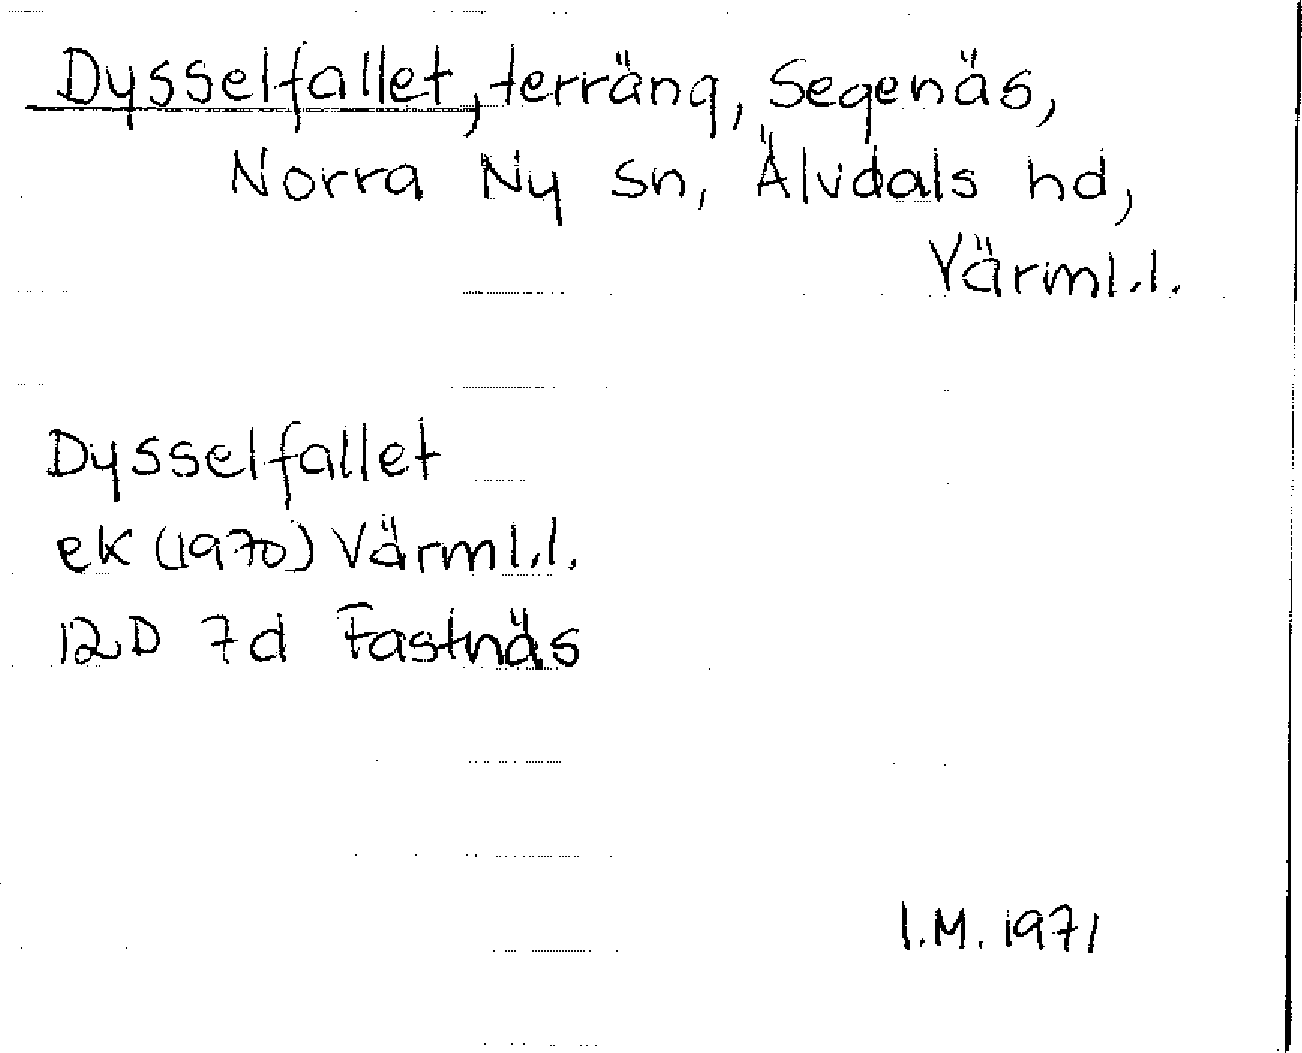 Dysselfallet, terräng, Segenäs,
Norra Ny sn, Älvdals hd,
Värml.l.
Dysselfallet
ek (1970) Värml.l.
12D 7d Fastnäs
I.M. 1971